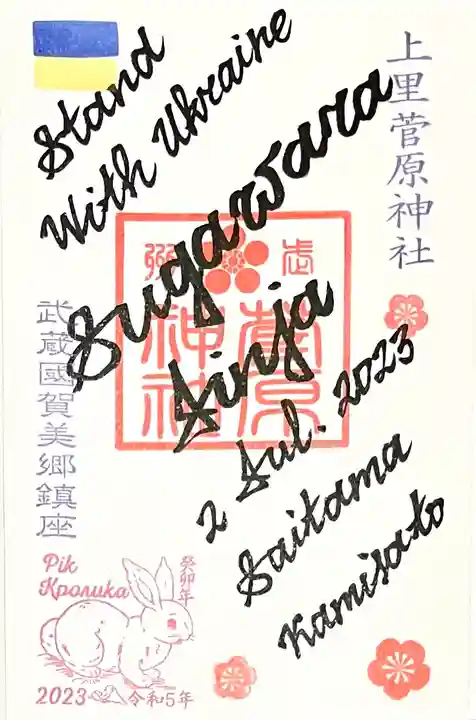 上里菅原神社
Stand
With Ukraine
Sugawara
Jinja
2 Jul. 2023
Saitama
Kamisato
菅原
神社
武蔵國賀美郷鎮座
Рік
Кролика
癸卯年
2023 令和5年